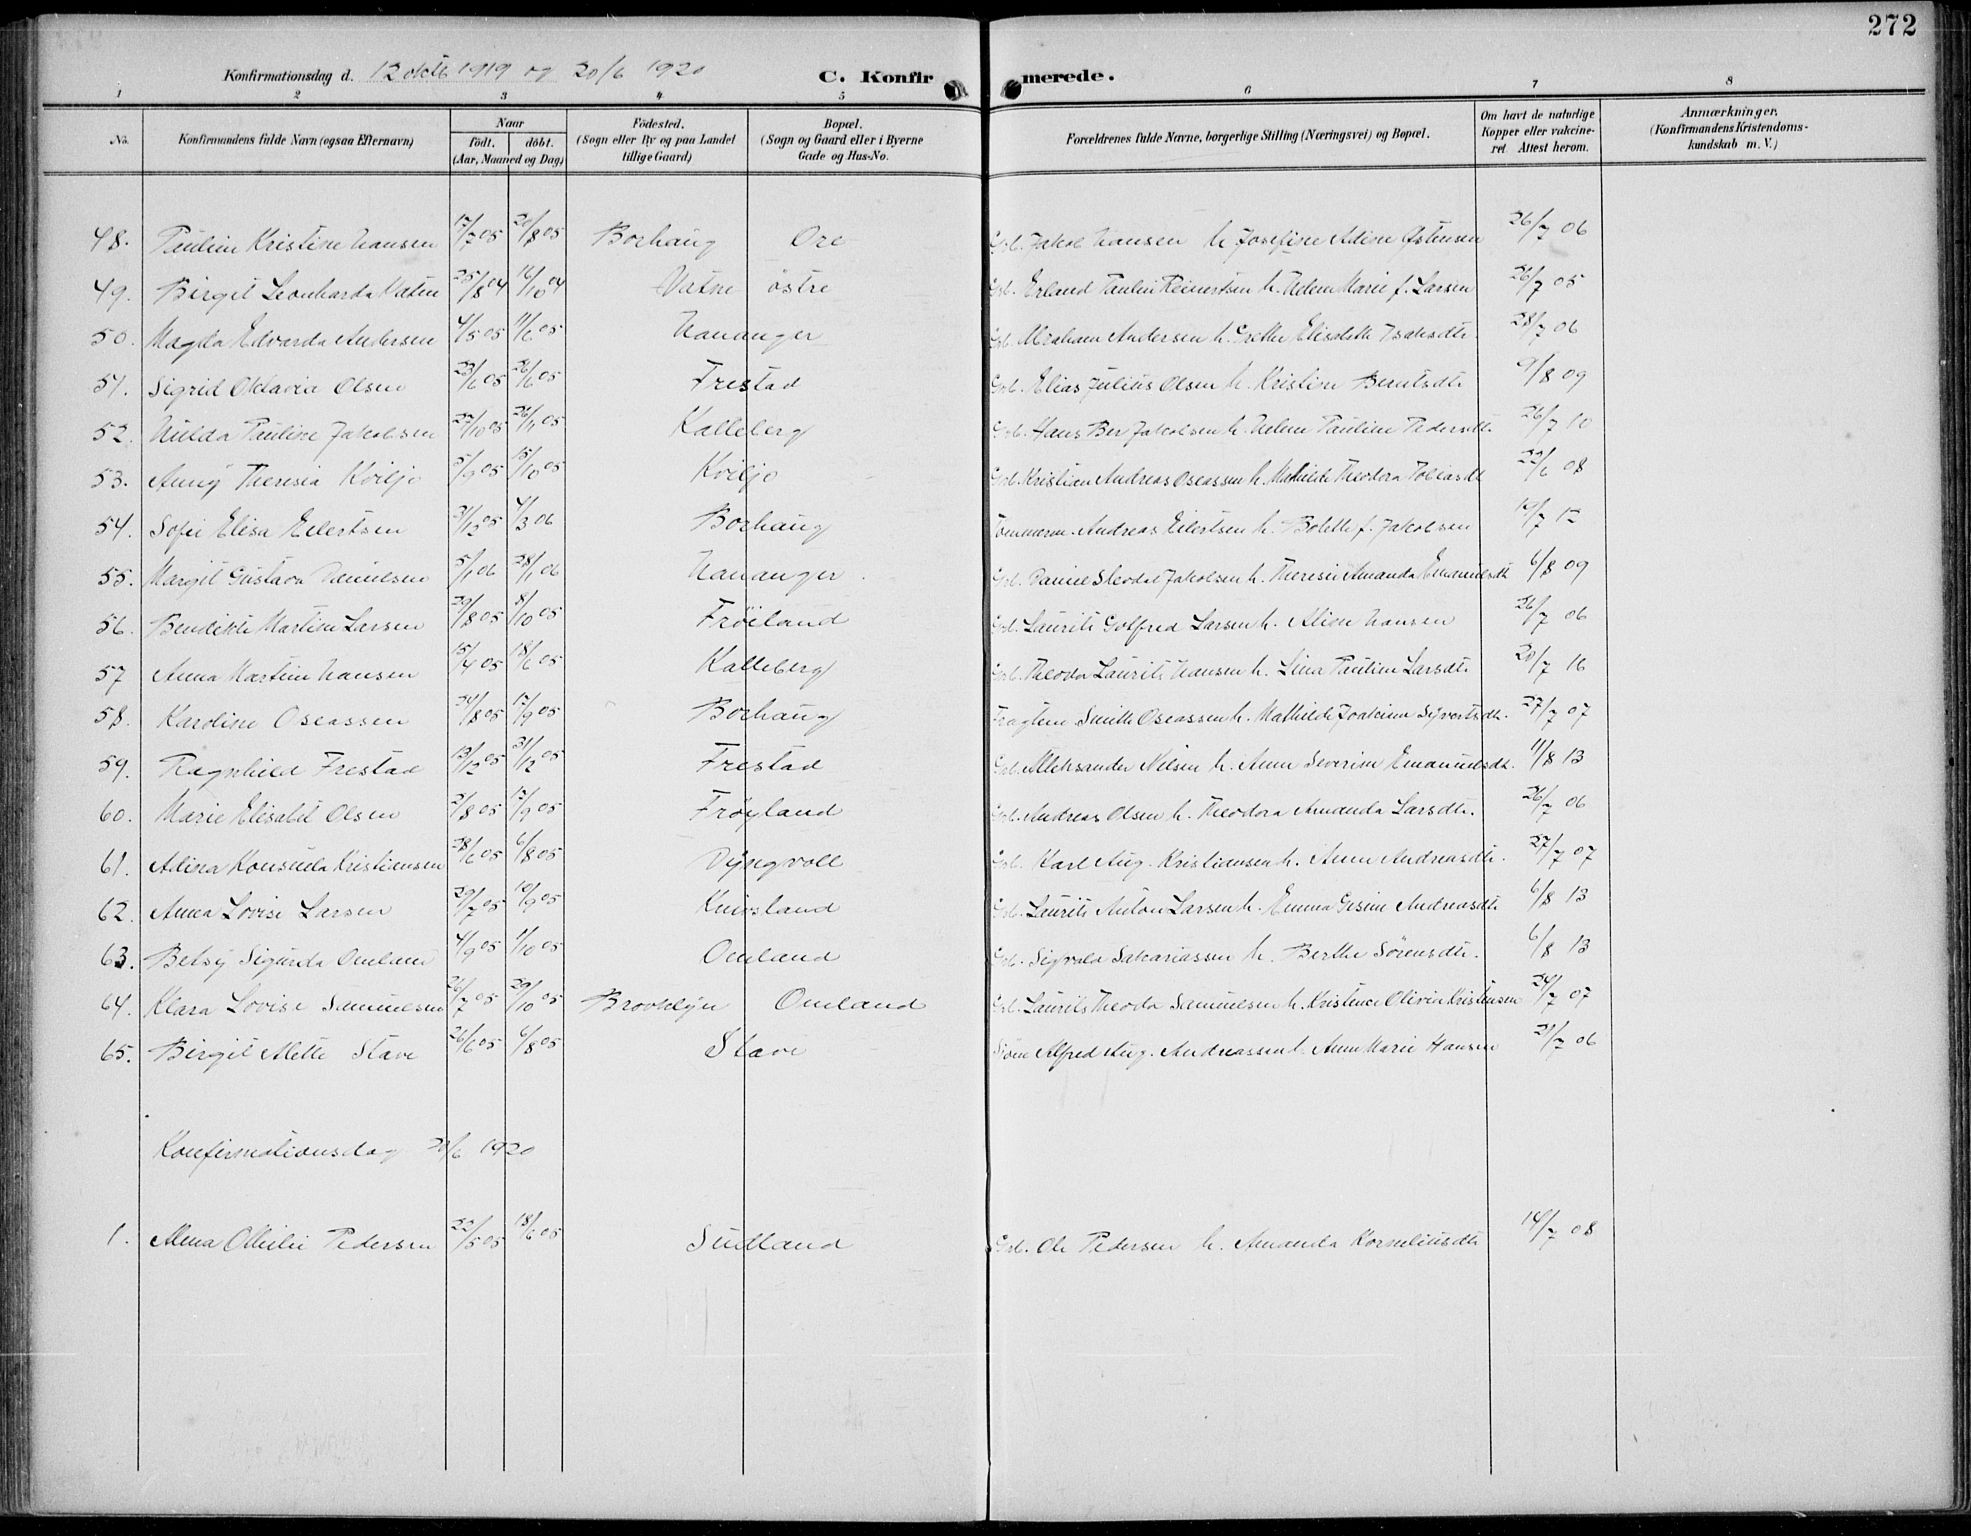 272
Konfirmationsdag d. 12 oktb 1919 og 20/6 1920 C. Konfirmerede.
1 2 3 4 5 6 7 8
No. Konfirmandens fulde Navn (ogsaa Efternavn) Naar födt. döbt. (Aar, Maaned og Dag) Födested. (Sogn eller By og paa Landet tillige Gaard) Bopæl. (Sogn og Gaard eller i Byerne Gade og Hus-No. Forældrenes fulde Navne, borgerlige Stilling (Næringsvei) og Bopæl. Om havt de naturlige Kopper eller vakcineret. Attest herom. Anmærkninger. (Konfirmandens Kristendomskundskab m. V.)
48. Pauline Kristine Hansen 17/7 05 20/8 05 Borhaug Ore Grb. Jakob Hansen h. Josefine Adine Østensen 26/7 06
49. Birgit Leonharda Vatne 25/8 04 16/10 04 Vatne östre Grb. Erland Paulin Reinertsen h. Helene Marie f. Larsen 26/7 05
50. Magda Edvarda Andersen 4/5 05 11/6 05 Hananger Grb. Abraham Andersen h. Grethe Elisabeth Isaksdt. 28/7 06
51. Sigrid Oktavia Olsen 23/6 05 26/6 05 Frestad Grb. Elias Julius Olsen h. Kristine Berntsdt. 9/8 09
52. Hulda Pauline Jakobsen 27/10 05 26/11 05 Kalleberg Grb. Hans Ber Jakobsen h. Helene Pauline Pedersdt. 26/7 10
53. Anny Theresia Kviljo 5/9 05 15/10 05 Kviljo Grb. Kristian Andreas Oseassen h. Mathilde Theodora Tobiasdt 22/6 08
54. Sofie Elisa Eilertsen 31/12 05 4/3 06 Borhaug Tömmerm. Andreas Eilertsen h. Bolette f. Jakobsen 19/7 12
55. Margit Gustava Danielsen 5/1 06 28/1 06 Hananger Grb. Daniel Skodal Jakobsen h. Theresie Amanda Emanuelsdt 6/8 09
56. Bendikte Martine Larsen 29/8 05 8/10 05 Fröiland Grb. Laurits Gotfred Larsen h. Aline Hansen 26/7 06
57 Anna Martine Hansen 15/4 05 18/6 05 Kalleberg Grb. Theodor Laurits Hansen h. Lina Pauline Larsdt. 20/7 16
58. Karoline Oseassen 24/8 05 17/9 05 Borhaug Fragtem Smith Oseassen h. Mathilde Joakime Syvertsdt. 27/7 07
59. Ragnhild Frestad 13/12 05 31/12 05 Frestad Grb. Aleksander Nilsen h. Anne Severine Emanuelsdt. 11/8 13
60. Marie Elisabet Olsen 2/8 05 17/9 05 Fröyland Grb. Andreas Olsen h. Theodora Amanda Larsdt. 26/7 06
61. Adina Konsuda Kristiansen 28/6 05 6/8 05 Dyngvoll Grb. Karl Aug. Kristiansen h. Anne Andreasdt. 27/7 07
62. Anna Lovise Larsen 29/7 05 10/9 05 Knivsland Grb. Laurits Anton Larsen h. Emma Gesine Andreasdt. 6/8 13
63. Betsy Sigurda Omland 4/9 05 1/10 05 Omland Grb. Sigvald Sakariassen h. Berthe Sörensdt. 6/8 13
64. Klara Lovise Samuelsen 26/7 05 29/10 05 Brooklyn Omland Grb. Laurits Theodor Samuelsen h. Kristence Olivia Kristensen 24/7 07
65. Birgit Alette Stave 26/6 05 6/8 05 Stave Sjöm Alfred Aug. Andreassen h. Anne Marie Hansen 21/7 06
Konfirmationsdag 20/6 1920
1. Alma Otilie Pedersen 22/5 05 18/6 05 Sudland Grb. Ole Pedersen h. Amanda Korneliusdt. 14/7 08